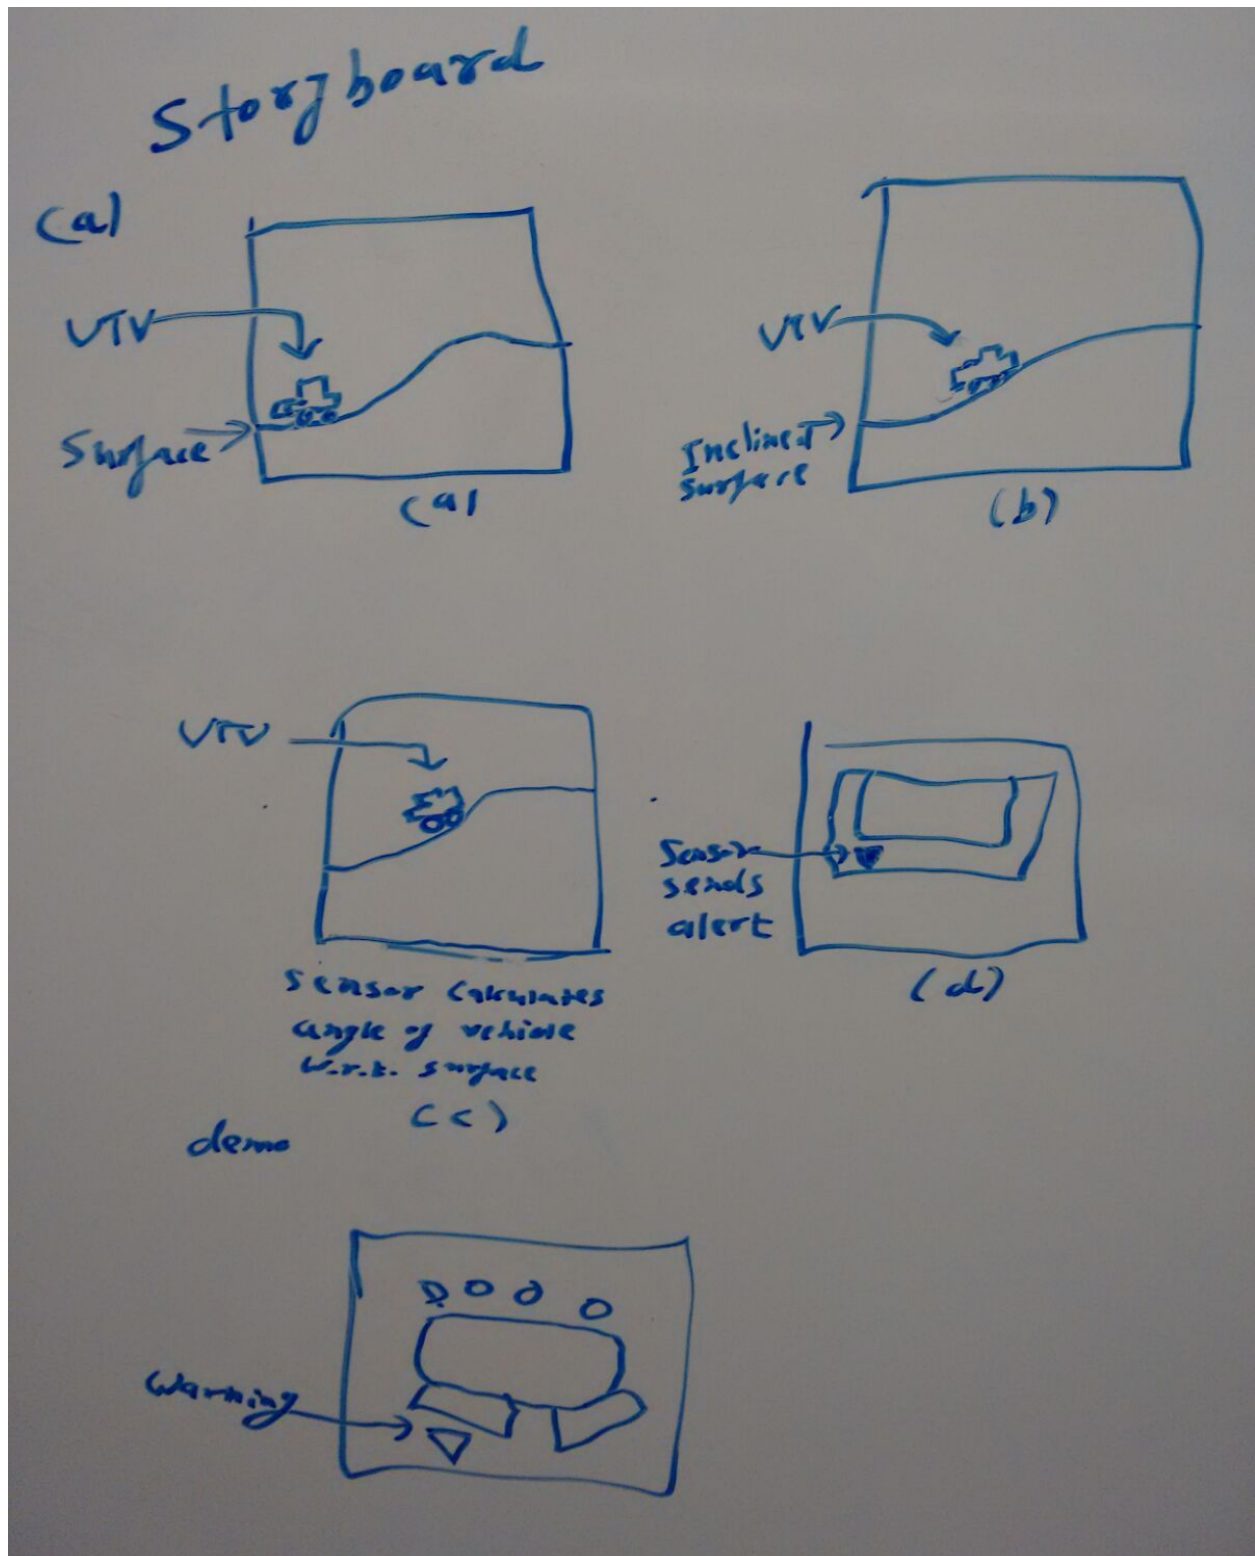 Storyboard
(a)
UTV
Surface
(a)
UTV
Inclined
surface
(b)
UTV
Sensor Calculates
angle of vehicle
w.r.t. surface
(c)
Sensor
sends
alert
(d)
demo
Warning